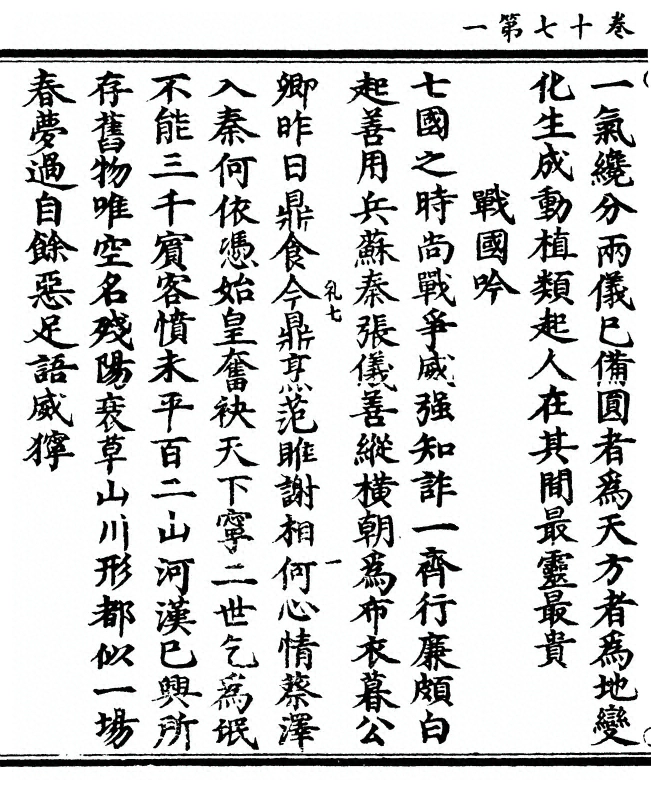 卷十七第一
一氣纔分兩儀已備圓者為天方者為地變
化生成動植類起人在其間最靈最貴
戰國吟
七國之時尚戰爭威强知詐一齊行廉頗白
起善用兵蘇秦張儀善縱橫朝為布衣暮公
卿昨日鼎食今鼎烹范睢謝相何心情蔡澤
入秦何依憑始皇奮袂天下寧二世乞為氓
不能三千賓客憤未平百二山河漢已興所
存舊物唯空名殘陽衰草山川形都似一場
春夢過自餘惡足語威獰